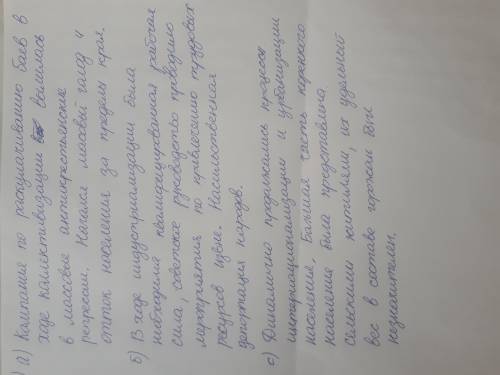 а) Кампание по раскулачиванию баев в
ходе коллективизации вылилась
в массовые антикрестьянские
репрессии. Начался массовый голод и
отток населения за пределы края.
б) В ходе индустриализации была
необходима квалифицированная рабочая
сила, советское руководство проводило
мероприятия по привлечению трудовых
ресурсов извне. Насильственная
депортация народов.
с) Динамично продолжались процессы
интернационализации и урбанизации
населения. Большая часть коренного
населения была представлена
сельскими жителями, их удельный
вес в составе горожан был
незначителен.